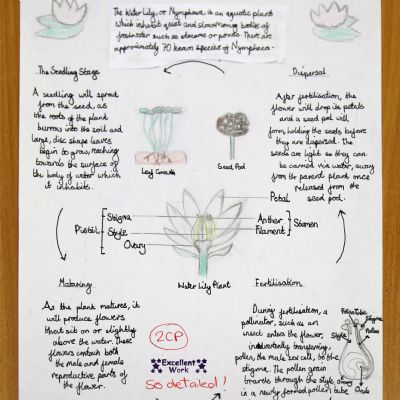 The Water Lily, or Nymphaea, is an aquatic plant
which inhabits quiet and slowmoving bodies of
freshwater such as streams or ponds. There are
approximately 70 known species of Nymphaea.
The Seedling Stage
A seedling will sprout
from the seed, as
the roots of the plant
burrow into the soil and
large, disc shape leaves
begin to grow, reaching
towards the surface of
the body of water which
it inhabits.
Leaf Growth
Seed Pod
Dispersal
After fertilisation, the
flower will drop its petals
and a seed pod will
form, holding the seeds before
they are dispersed. The
seeds are light so they can
be carried via water, away
from the parent plant once
released from the
seed pod.
Petal
Pistil
Stigma
Style
Ovary
Anther
Filament
Stamen
Water Lily Plant
Maturing
As the plant matures, it
will produce flowers
that sit on or slightly
above the water. These
flowers contain both
the male and female
reproductive parts of
the flower.
2CP
Excellent
Work
so detailed!
Fertilisation
During fertilisation, a
pollinator, such as an
insect enters the flower,
inadvertently transferring
pollen, the male sex cell, to the
stigma. The pollen grain
travels through the style
in a newly formed pollen tube
Pollen Tube
Stigma
Pollen
Style
Ovary
Ovule